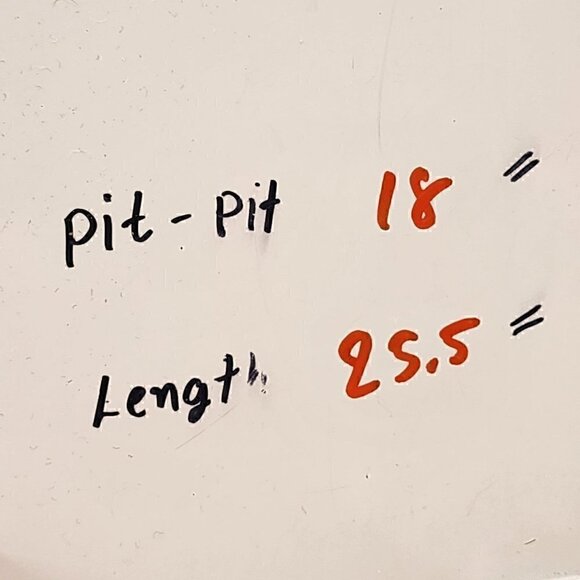 pit - pit 18 "
Length 25.5 "